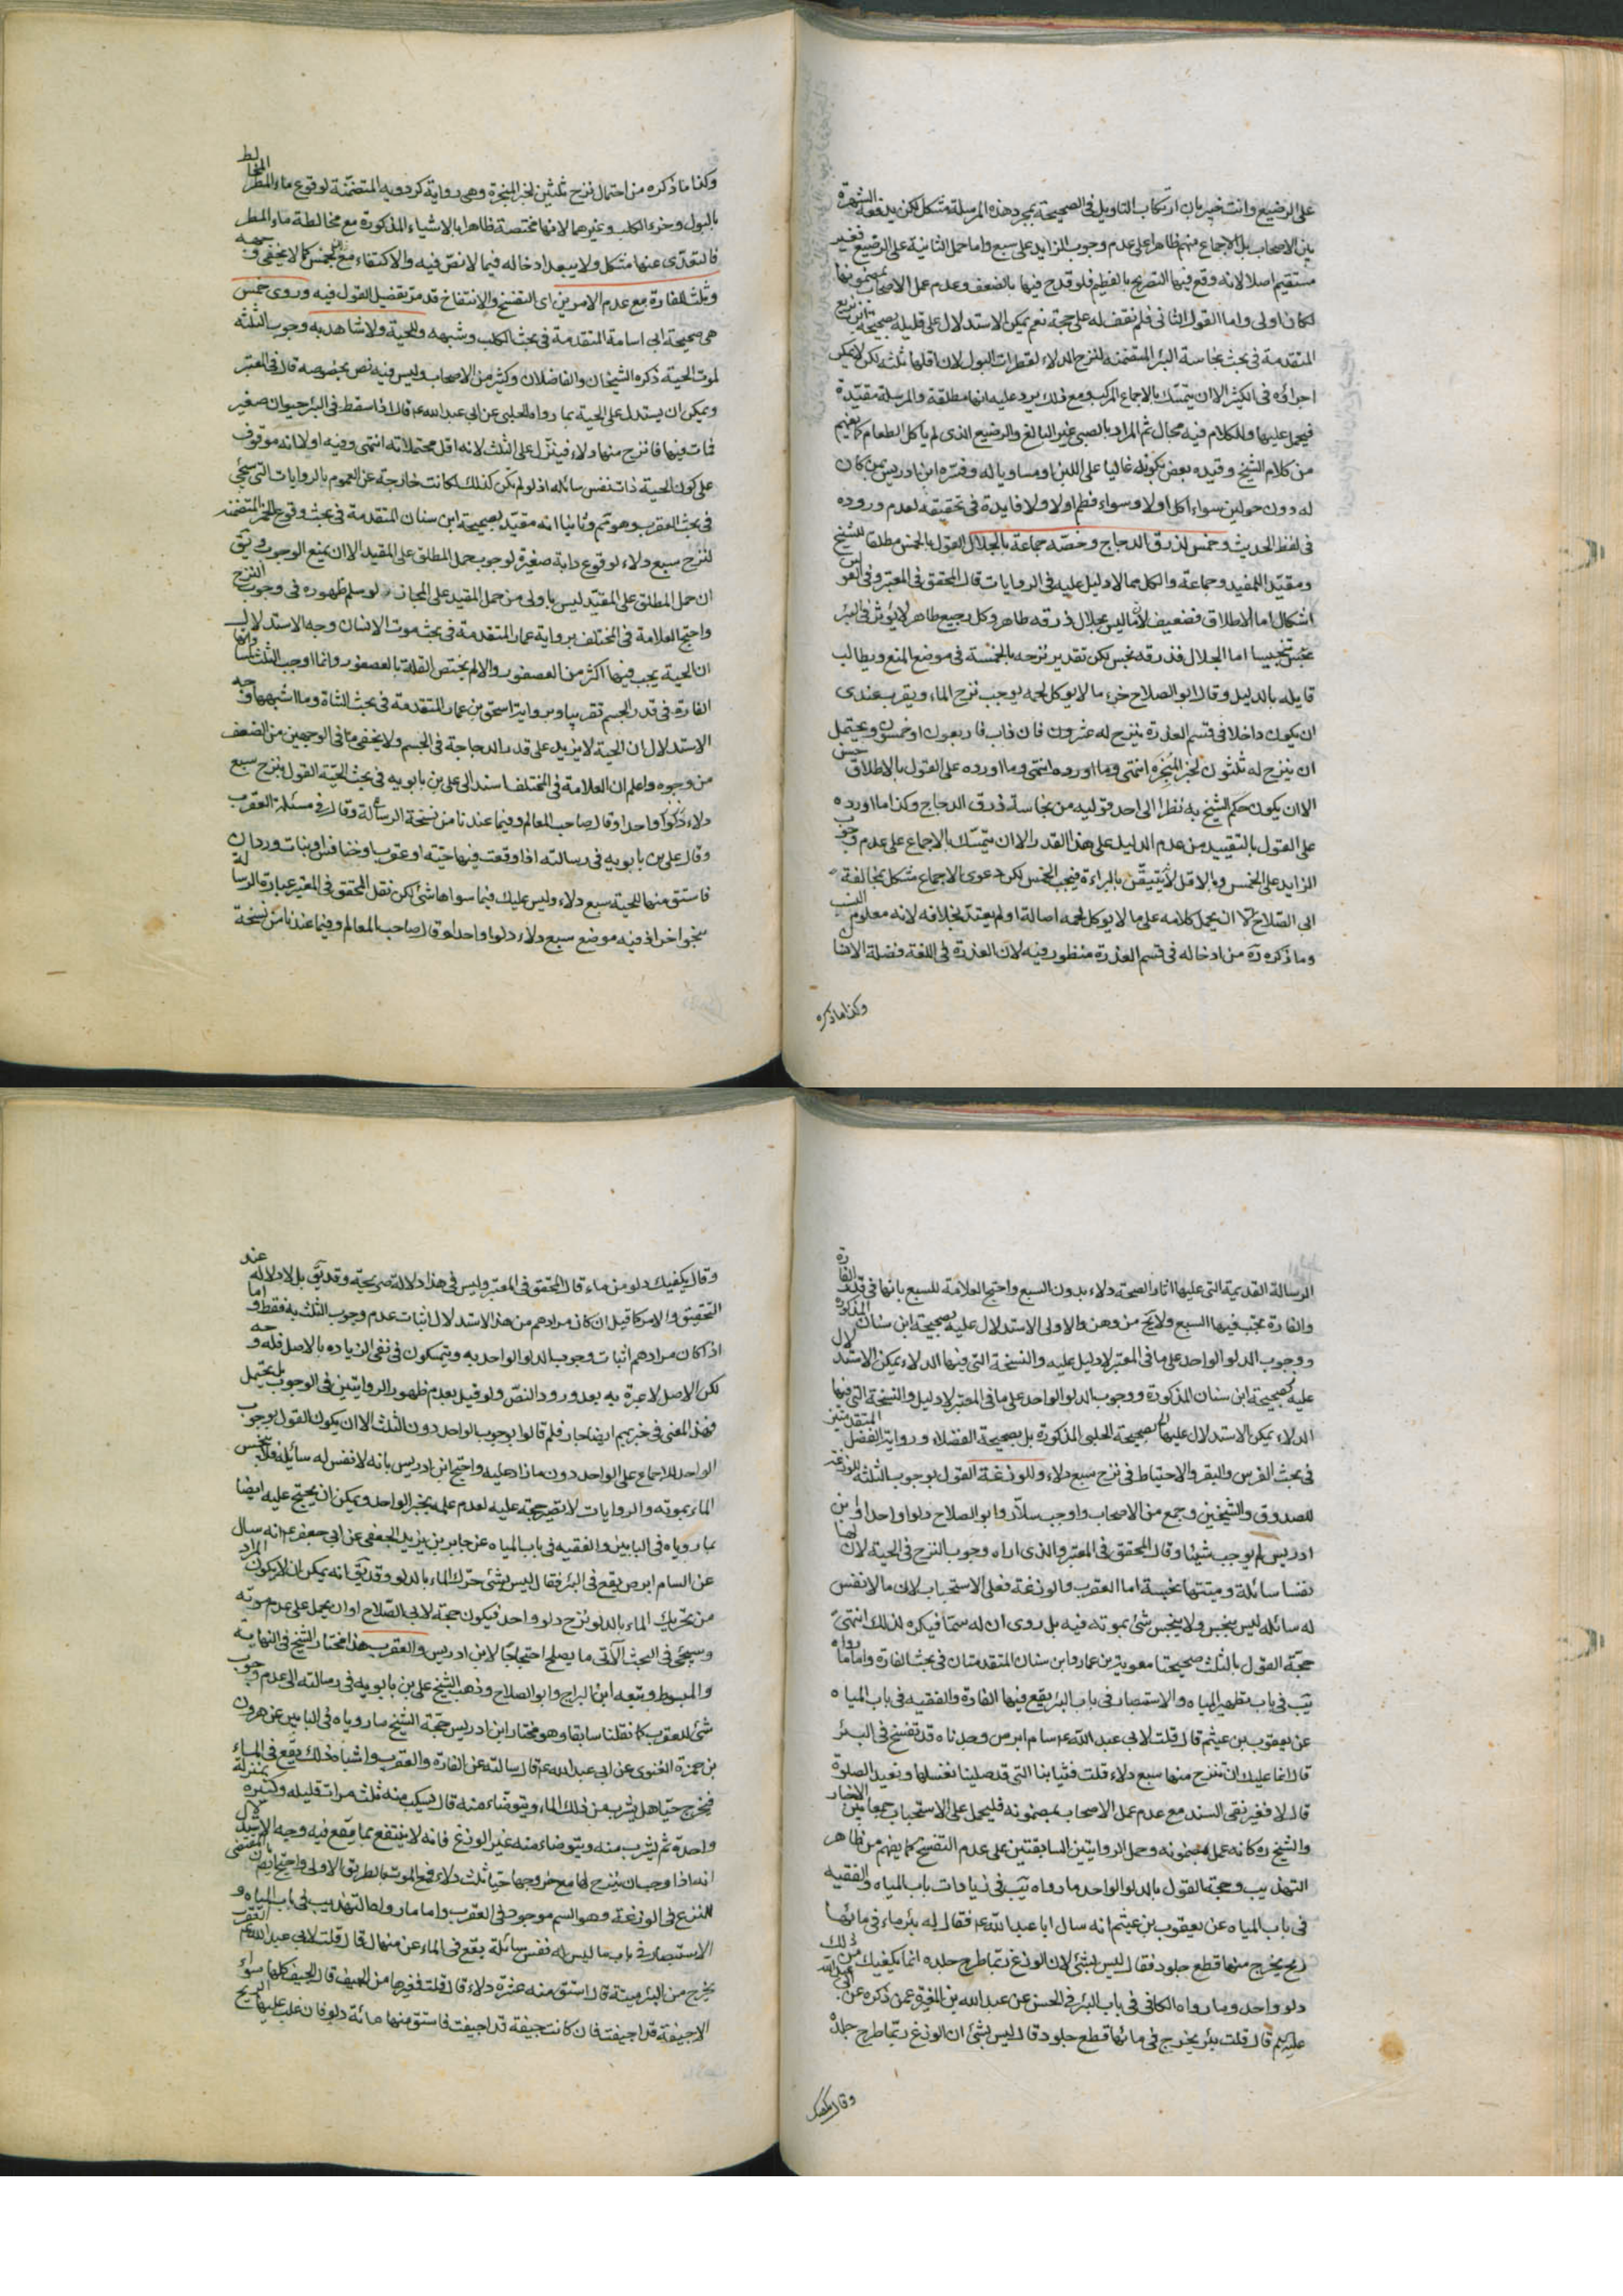 على الرضيع وانت خبير بان ارتكاب التاويل فى الصحيحة بمجرد هذه المرسلة مشكل لكن يدفعه الشهرة
بين الاصحاب بل الاجماع منهم ظاهرا على عدم وجوب الزايد على سبع واما حمل الثانية على الرضيع فغير
مستقيم اصلا لانه وقع فيها التصريح بالفطيم فلو قدح فيها بالضعف وعدم عمل الاصحاب بمضمونها
لكان اولى واما القول الثانى فلم نقف له على حجة نعم يمكن الاستدلال على قليله بصحيحة ابن بزيع
المتقدمة فى بحث نجاسة البئر المتضمنة لنزح الدلاء لقطرات البول لان اقلها ثلثه لكن لا يمكن
اجراؤه فى الكثير الا ان يتمسك بالاجماع المركب ومع ذلك يرد عليه انها مطلقة والمرسلة مقيدة
فيحمل عليها وللكلام فيه مجال ثم المراد بالصبى غير البالغ والرضيع الذى لم ياكل الطعام كما يفهم
من كلام الشيخ وقيده بعض بكونه غالبا على اللبن او مساويا له وفسره ابن ادريس بمن كان
له دون حولين سواء اكل اولا وسواء فطم اولا ولا فايدة فى تحقيقه لعدم وروده
فى لفظ الحديث وخمس لذرق الدجاج وخصه جماعة بالجلال القول بالخمس مطلقا للشيخ
ومقيدا للمفيد وجماعة والكل مما لا دليل عليه فى الروايات قال المحقق فى المعتبر وفى القو
اشكال اما الاطلاق فضعيف لان ما ليس بجلال ذرقه طاهر وكل رجيع طاهر لا يؤثر فى البئر
تنجيسا اما الجلال فذرقه نجس لكن تقدير نزحه بالخمسة فى موضع المنع ويطالب
قايله بالدليل وقال ابو الصلاح خرء ما لا يوكل لحمه يوجب نزح الماء ويقرب عندى
ان يكون داخلا فى قسم العذرة ينزح له عشرون فان ذاب فاربعون او خمسون ويحتمل
ان ينزح له ثلثون لخبر المنجرة انتهى وما اورده انتهى وما اورده على القول بالاطلاق حسن
الا ان يكون حكم الشيخ به نظرا الى احد قوليه من نجاسة ذرق الدجاج وكذا ما اورده
على القول بالتقييد من عدم الدليل على هذا القدر الا ان يتمسك بالاجماع على عدم وجوب
الزايد على الخمس وبالاقل لا يتيقن بالبراءة فيجب الخمس لكن دعوى الاجماع مشكل بمخالفة
ابى الصلاح الا ان يحمل كلامه على ما لا يوكل لحمه اصالة او لم يعتد بخلافه لانه معلوم النسب
وما ذكره ره من ادخاله فى قسم العذرة منظور فيه لان العذرة فى اللغة فضلة الانسان
وكذا ما ذكره
وكذا ما ذكره من احتمال نزح ثلثين لخبر المنجرة وهى رواية كردويه المتضمنة لوقوع ماء المطر المخالط
بالبول وخرء الكلب وغيرهما لانها مختصة ظاهرا بالاشياء المذكورة مع مخالطة ماء المطر
فالتعدى عنها مشكل ولا يبعد ادخاله فيما لا نص فيه والاكتفاء مع بالخمس كما لا يخفى وجهه
وثلث للفارة مع عدم الامرين اى التفسخ والانتفاخ قد مر تفصيل القول فيه وروى خمس
هى صحيحة ابى اسامة المتقدمة فى بحث الكلب وشبهه والحية ولا شاهد به وجوب الثلثه
لموت الحية ذكره الشيخان والفاضلان وكثير من الاصحاب وليس فيه نص بخصوصه قال فى المعتبر
ويمكن ان يستدل على الحية بما رواه الحلبى عن ابى عبد الله ع قال اذا سقط فى البئر حيوان صغير
فمات فيها فانزح منها دلاء فينزل على الثلث لانه اقل محتملاته انتهى وفيه اولا انه موقوف
على كون الحية ذات نفس سائله اذ لو لم تكن كذلك لكانت خارجة عن العموم بالروايات التى ستجئ
فى بحث العقرب وهو ثم وثانيا انه مقيد بصحيحة ابن سنان المتقدمة فى بحث وقوع الخمر المتضمنة
لنزح سبع دلاء لوقوع دابة صغيرة لوجوب حمل المطلق على المقيد الا ان يمنع الوجوب ويق
ان حمل المطلق على المقيد ليس باولى من حمل المقيد على المجاز لو سلم ظهوره فى وجوب النزح
واحتج العلامة فى المختلف برواية عمار المتقدمة فى بحث موت الانسان وجه الاستدلال
ان الحية يجب فيها اكثر من العصفور والا لم يختص القلة بالعصفور وانما اوجب الثلث
الفارة فى قدر الجسم تقريبا وبرواية اسحق بن عمار المتقدمة فى بحث الشاة وما اشبهها وجه
الاستدلال ان الحية لا يزيد على قدر الدجاجة فى الجسم ولا يخفى ما فى الوجهين من الضعف
من وجوه واعلم ان العلامة فى المختلف اسند الى على بن بابويه فى بحث الحية القول بنزح سبع
دلاء دلوا واحدا وقال صاحب المعالم وفيما عندنا من نسخة الرسالة وقال فى مسئلة العقرب
وقال على بن بابويه فى رسالته اذا وقعت فيها حية او عقرب او خنافس او بنات وردان
فاستق منها للحية سبع دلاء وليس عليك فيما سواها شئ لكن نقل المحقق فى المعتبر عبارة الرسالة
بنحو اخر اذ فيه موضع سبع دلاء دلوا واحدا وقال صاحب المعالم وفيما عندنا من نسخة
الرسالة القديمة التى عليها اثار الصحة دلاء بدون السبع واحتج العلامة للسبع بانها فى قدر الفارة
والفارة يجب فيها السبع ولا يخ من وهن والاولى الاستدلال عليه بصحيحة ابن سنان المذكورة
ووجوب الدلو الواحد على ما فى المعتبر لا دليل عليه والنسخة التى فيها الدلاء يمكن الاستدلال
عليه بصحيحة ابن سنان المذكورة ووجوب الدلو الواحد على ما فى المعتبر لا دليل والنسخة التى فيها
الدلاء يمكن الاستدلال عليها بصحيحة الحلبى المذكورة بل بصحيحة الفضلاء ورواية الفضل المتقدمتين
فى بحث الفرس والبقر والاحتياط فى نزح سبع دلاء وللوزغة القول بوجوب الثلثة للوزغة
للصدوق والشيخين وجمع من الاصحاب واوجب سلار وابو الصلاح دلوا واحدا وابن
ادريس لم يوجب شيئا وقال المحقق فى المعتبر والذى اراه وجوب النزح فى الحية لان لها
نفسا سائلة وميتتها نجسة اما العقرب والوزغة فعلى الاستحباب لان ما لا نفس
له سائله ليس بنجس ولا ينجس شئ بموته فيه بل روى ان له سما فيكره لذلك انتهى
حجة القول بالثلث صحيحتا معوية بن عمار وابن سنان المتقدمتان فى بحث الفارة واما ما رواه
يب فى باب تطهير المياه والاستبصار فى باب البئر يقع فيها الفارة والفقيه فى باب المياه
عن يعقوب بن عيثم قال قلت لابى عبد الله ع سام ابرص وجدناه قد تفسخ فى البئر
قال انما عليك ان تنزح منها سبع دلاء قلت فثيابنا التى قد صلينا نغسلها ونعيد الصلوة
قال لا فغير نقى السند مع عدم عمل الاصحاب بمضمونه فليحمل على الاستحباب جمعا بين الاخبار
والشيخ ره كانه عمل بمضمونه وحمل الروايتين السابقتين على عدم التفسخ كما يفهم من ظاهر
التهذيب وحجة القول بالدلو الواحد ما رواه يب فى زيادات باب المياه والفقيه
فى باب المياه عن يعقوب بن عيثم انه سال ابا عبد الله ع فقال له بئر ماء فى مائها
ريح يخرج منها قطع جلود فقال ليس بشئ لان الوزغ ربما طرح جلده انما يكفيك من ذلك
دلو واحد وما رواه الكافى فى باب البئر فى الحسن عن عبد الله بن المغيرة عمن ذكره عن ابى عبد الله
عليه السلم قال قلت بئر يخرج فى مائها قطع جلود قال ليس بشئ ان الوزغ ربما طرح جلده
وقال يكفيك
وقال يكفيك دلو من ماء قال المحقق فى المعتبر وليس فى هذا دلالة صريحة وقد يق بل لا دلالة عند
التحقيق والامر كما قيل ان كان مرادهم من هذا الاستدلال اثبات عدم وجوب الثلث به فقط واما
اذا كان مرادهم اثبات وجوب الدلو الواحد به ويتمسكون فى نفى الزياده بالاصل فله وجه
لكن الاصل لا عبرة به بعد ورود النص ولو قيل بعدم ظهور الروايتين فى الوجوب بل يحتمل
فهذا المعنى فى خبريهم ايضا جار فلم قالوا بوجوب الواحد دون الثلث الا ان يكون القول بوجوب
الواحد للاجماع على الواحد دون ما زاد عليه واحتج ابن ادريس بانه لا نفس له سائله فلا ينجس
الماء بموته والروايات لا تصير حجة عليه لعدم عمله بخبر الواحد ويمكن ان يحتج عليه ايضا
بما روياه فى البابين والفقيه فى باب المياه عن جابر بن يزيد الجعفى عن ابى جعفر ع انه سال
عن السام ابرص يقع فى البئر فقال ليس بشئ حرك الماء بالدلو وقد يق انه يمكن ان يكون المراد
من تحريك الماء بالدلو نزح دلو واحد فيكون حجة لابى الصلاح او ان يحمل على عدم موته
وسيجئ فى البحث الآتى ما يصلح احتجاجا لابن ادريس والعقرب هذا مختار الشيخ فى النهاية
والمبسوط وتبعه ابن البراج وابو الصلاح وذهب الشيخ على بن بابويه فى رسالته الى عدم وجوب
شئ للعقرب كما نقلنا سابقا وهو مختار ابن ادريس حجة الشيخ ما روياه فى البابين عن هرون
بن حمزة الغنوى عن ابى عبد الله ع قال سالته عن الفارة والعقرب واشباه ذلك يقع فى الماء
فيخرج حيا هل يشرب من ذلك الماء ويتوضاء منه قال يسكب منه ثلث مرات قليله وكثيره بمنزلة
واحدة ثم يشرب منه ويتوضاء منه غير الوزغ فانه لا ينتفع بما يقع فيه وجه الاستدلال
انه اذا وجب ان ينزح لها مع خروجها حيا ثلث دلاء فمع الموت بالطريق الاولى واحتج ايضا بان المقتضى
للنزح فى الوزغة وهو السم موجود فى العقرب واما ما رواه التهذيب فى باب المياه و
الاستبصار فى باب ما ليس له نفس سائلة يقع فى الماء عن منهال قال قلت لابى عبد الله ع العقرب
يخرج من البئر ميتة قال استق منه عشرة دلاء قال قلت فغيرها من الجيف قال الجيف كلها سواء
الا جيفة قد اجيفت فان كانت جيفة قد اجيفت فاستق منها مائة دلو فان غلب عليها الريح